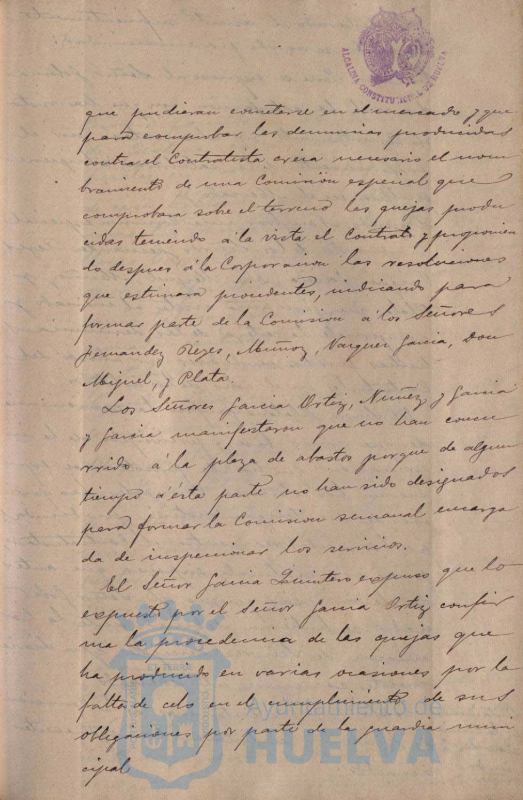 ALCALDIA CONSTITUCIONAL DE HUELVA
que pudieran cometerse en el mercado y que
para comprobar las denuncias producidas
contra el Contratista creia necesario el nom
bramiento de una Comision especial que
comprobara sobre el terreno las quejas produ
cidas teniendo á la vista el Contrato y proponien
do despues á la Corporacion las resoluciones
que estimara procedentes, indicando para
formar parte de la Comision á los Señores
Fernandez Reyes, Muñoz, Vazquez Garcia, Don
Miguel, y Plata.
Los Señores Garcia Ortiz, Nuñez y Garcia
y Garcia manifestaron que no han concu
rrido á la plaza de abastos porque de algun
tiempo á ésta parte no han sido designados
para formar la Comision semanal encarga
da de inspeccionar los servicios.
El Señor Garcia Quintero expuso que lo
expuesto por el Señor Garcia Ortiz confir
ma la procedencia de las quejas que
ha producido en varias ocasiones por la
falta de celo en el cumplimiento de sus
obligaciones por parte de la guardia muni
cipal
Ayuntamiento de
HUELVA